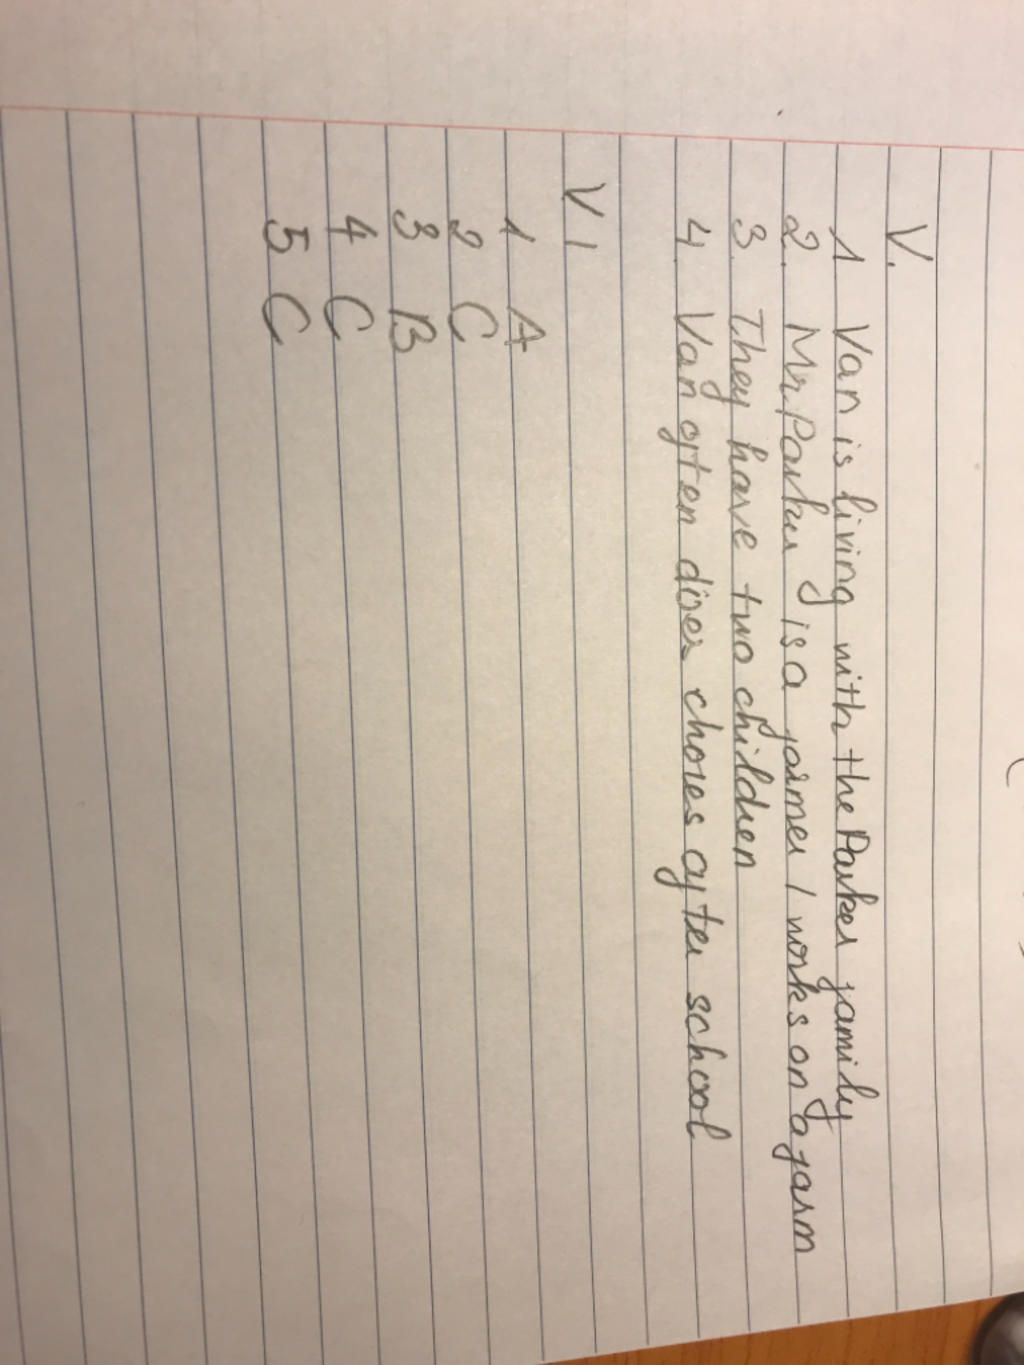 V.
1 Van is living with the Parker family
2. Mr. Parker is a farmer / works on a farm
3. They have two children
4. Van often does chores after school
VI
1 A
2 C
3 B
4 C
5 C